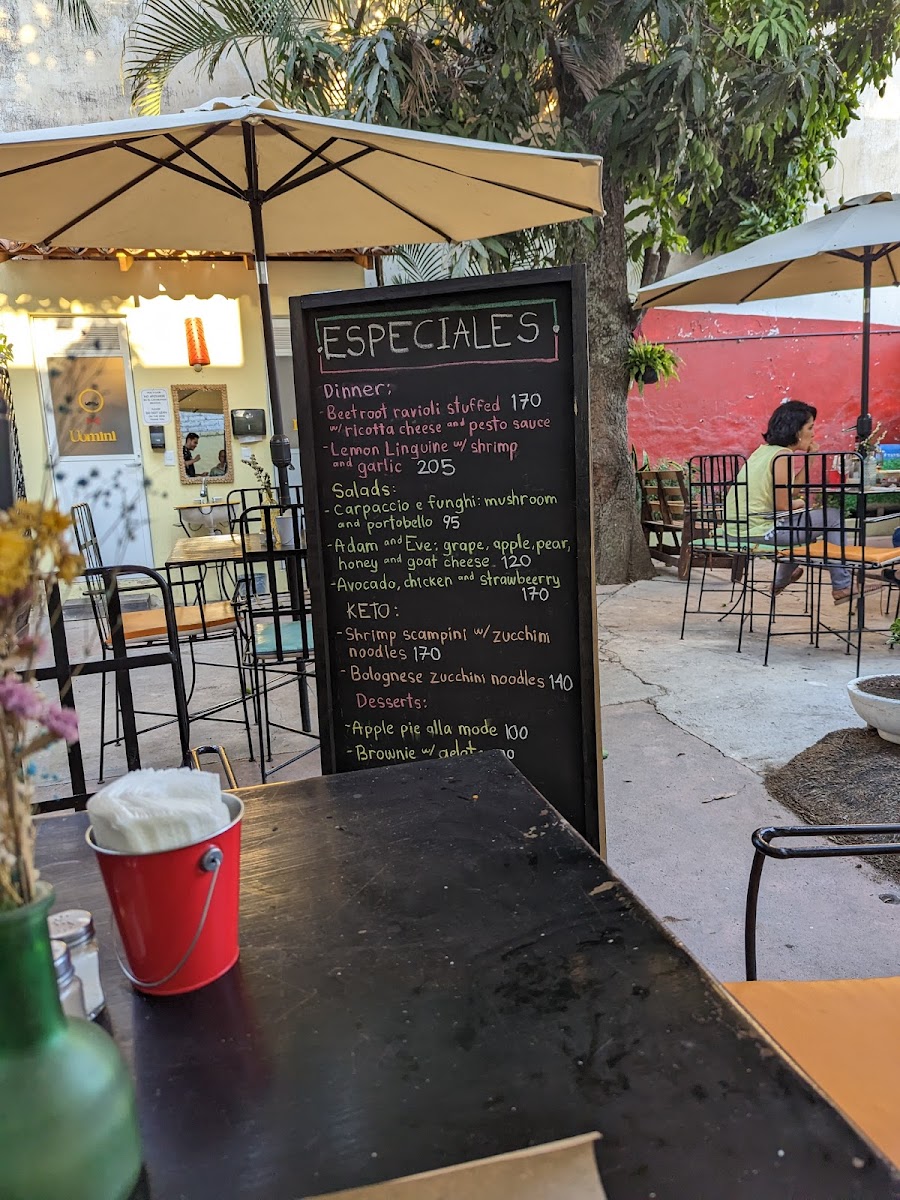 ESPECIALES
Dinner:
-Beetroot ravioli stuffed 170
w/ ricotta cheese and pesto sauce
-Lemon Linguine w/ shrimp
and garlic 205
Salads:
-Carpaccio e funghi: mushroom
and portobello 95
-Adam and Eve: grape, apple, pear,
honey and goat cheese 120
-Avocado, chicken and strawbeerry
170
KETO:
-Shrimp scampini w/ zucchini
noodles 170
-Bolognese zucchini noodles 140
Desserts:
-Apple pie alla mode 100
-Brownie w/
Uomini